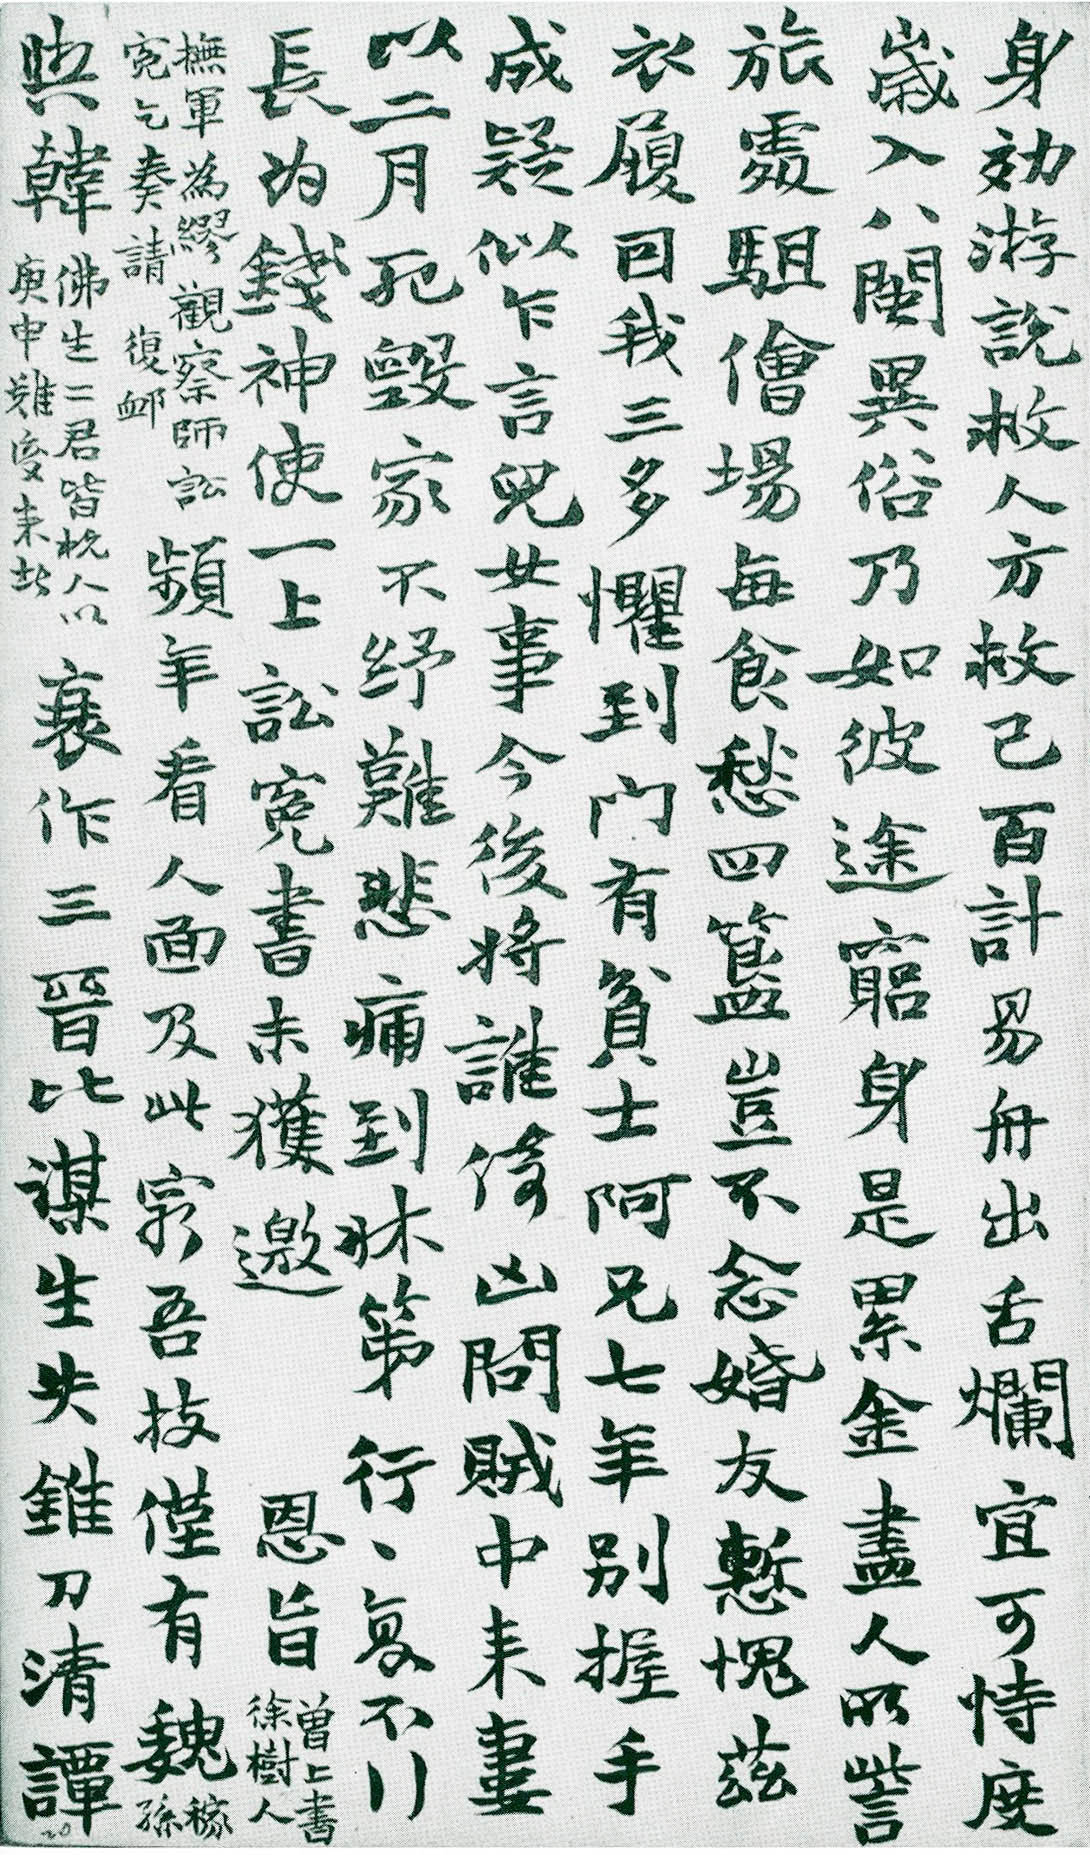 身効游說救人方救己百計易舟出舌爛宜可恃度
歲入八閩異俗乃如彼途窮身是累金盡人所訾
旅處駔儈場每食愁四簋豈不念婚友慙愧茲
衣履回我三多懼到門有貧士阿兄七年別握手
成疑似乍言兒女事今後將誰倚凶問賊中来妻
以二月死毀家不纾難悲痛到牀第行、复不行
長為錢神使一上訟冤書未獲邀 恩旨
曾上書
徐樹人
撫軍為繆觀察師訟
冤乞奏請 復卹
頻年看人面及此窮吾技僅有魏
稼
孫
與韓
佛生二君皆杭人以
庚申難後来此
哀作三晉比謀生失錐刀清譚